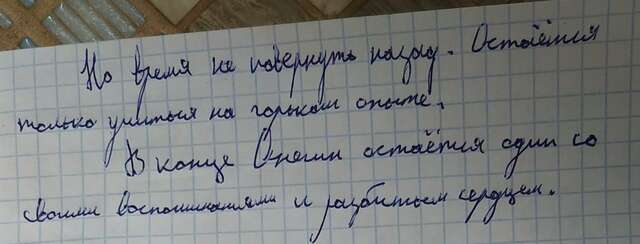 Но время не повернуть назад. Остаётся
только учиться на горьком опыте.
В конце Онегин остаётся один со
своими воспоминаниями и разбитым сердцем.